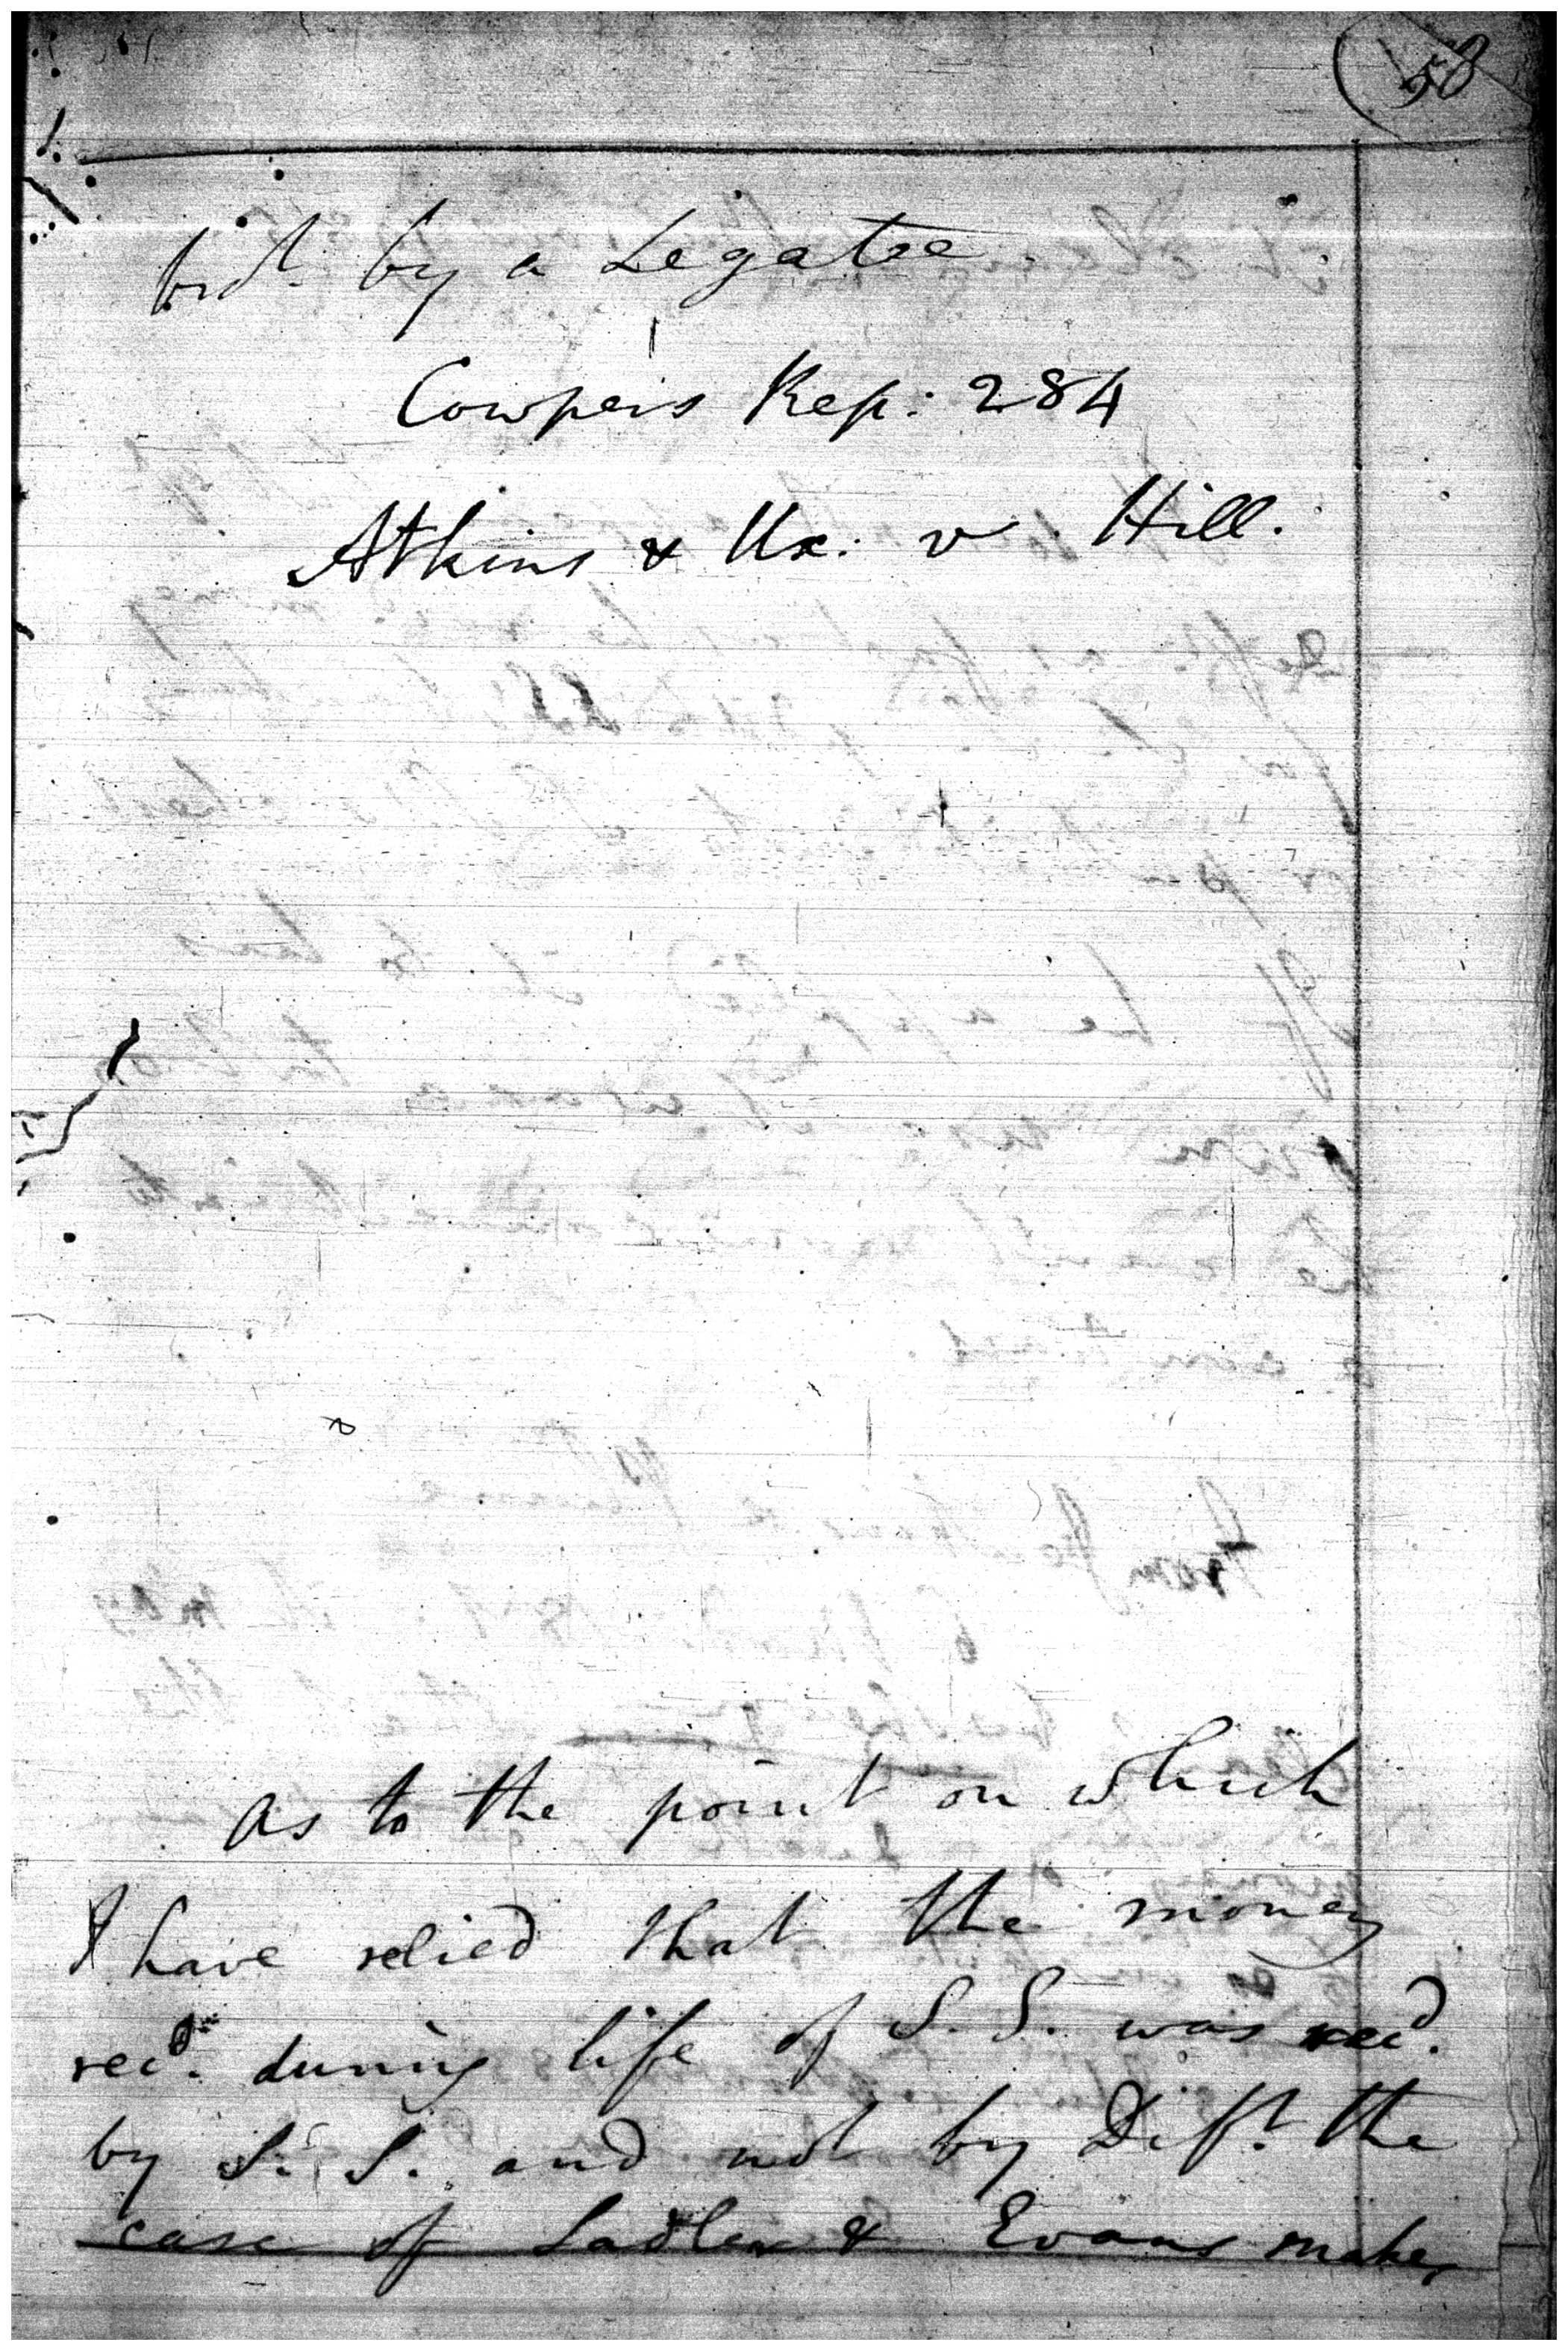 50
brt. by a Legatee.
Cowpers Rep: 284
Atkins & Ux: v Hill.
as to the point on which
I have relied that the money
recd. during life of S. S. was recd.
by S. S. and not by Deft. the
case of Sadler & Evans makes